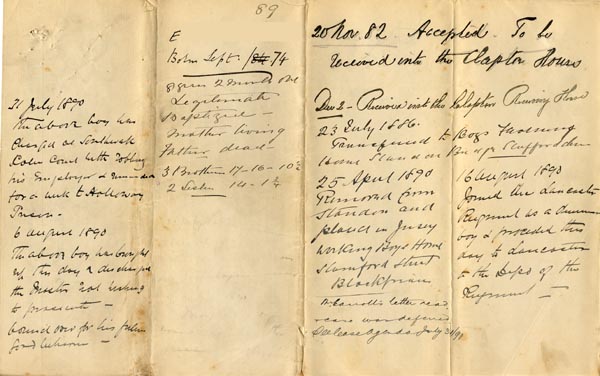 89
31 July 1890
The above boy was
charged at Southwark
Police Court with robbing
his Employer & remanded
for a week to Holloway
Prison -
6 August 1890
The above boy was brought
up this day & discharged
the Master not wishing
to prosecute -
bound over for his future
good behaviour -
E
Born Sept. 1874
8 years 2 months old
Legitimate
Baptized -
Mother living
Father dead -
3 Brothers 17 - 16 - 10½
2 Sisters 14 - 1½
20 Nov. 82 Accepted. To be
received into the Clapton House
Dec 2 - Received into the Clapton Receiving House
23 July 1886.
Transferred to Boys Farming
Home Standon Bridge Staffordshire
25 April 1890
Removed from
Standon and
placed in
Working Boys Home
Stamford Street
Blackfriars
letter read
case was deferred
Case Agenda July 31/90
6 August 1890
Joined the Lancaster
Regiment as a drummer
boy & proceeded this
day to Lancaster
to the Depot of the
Regiment -